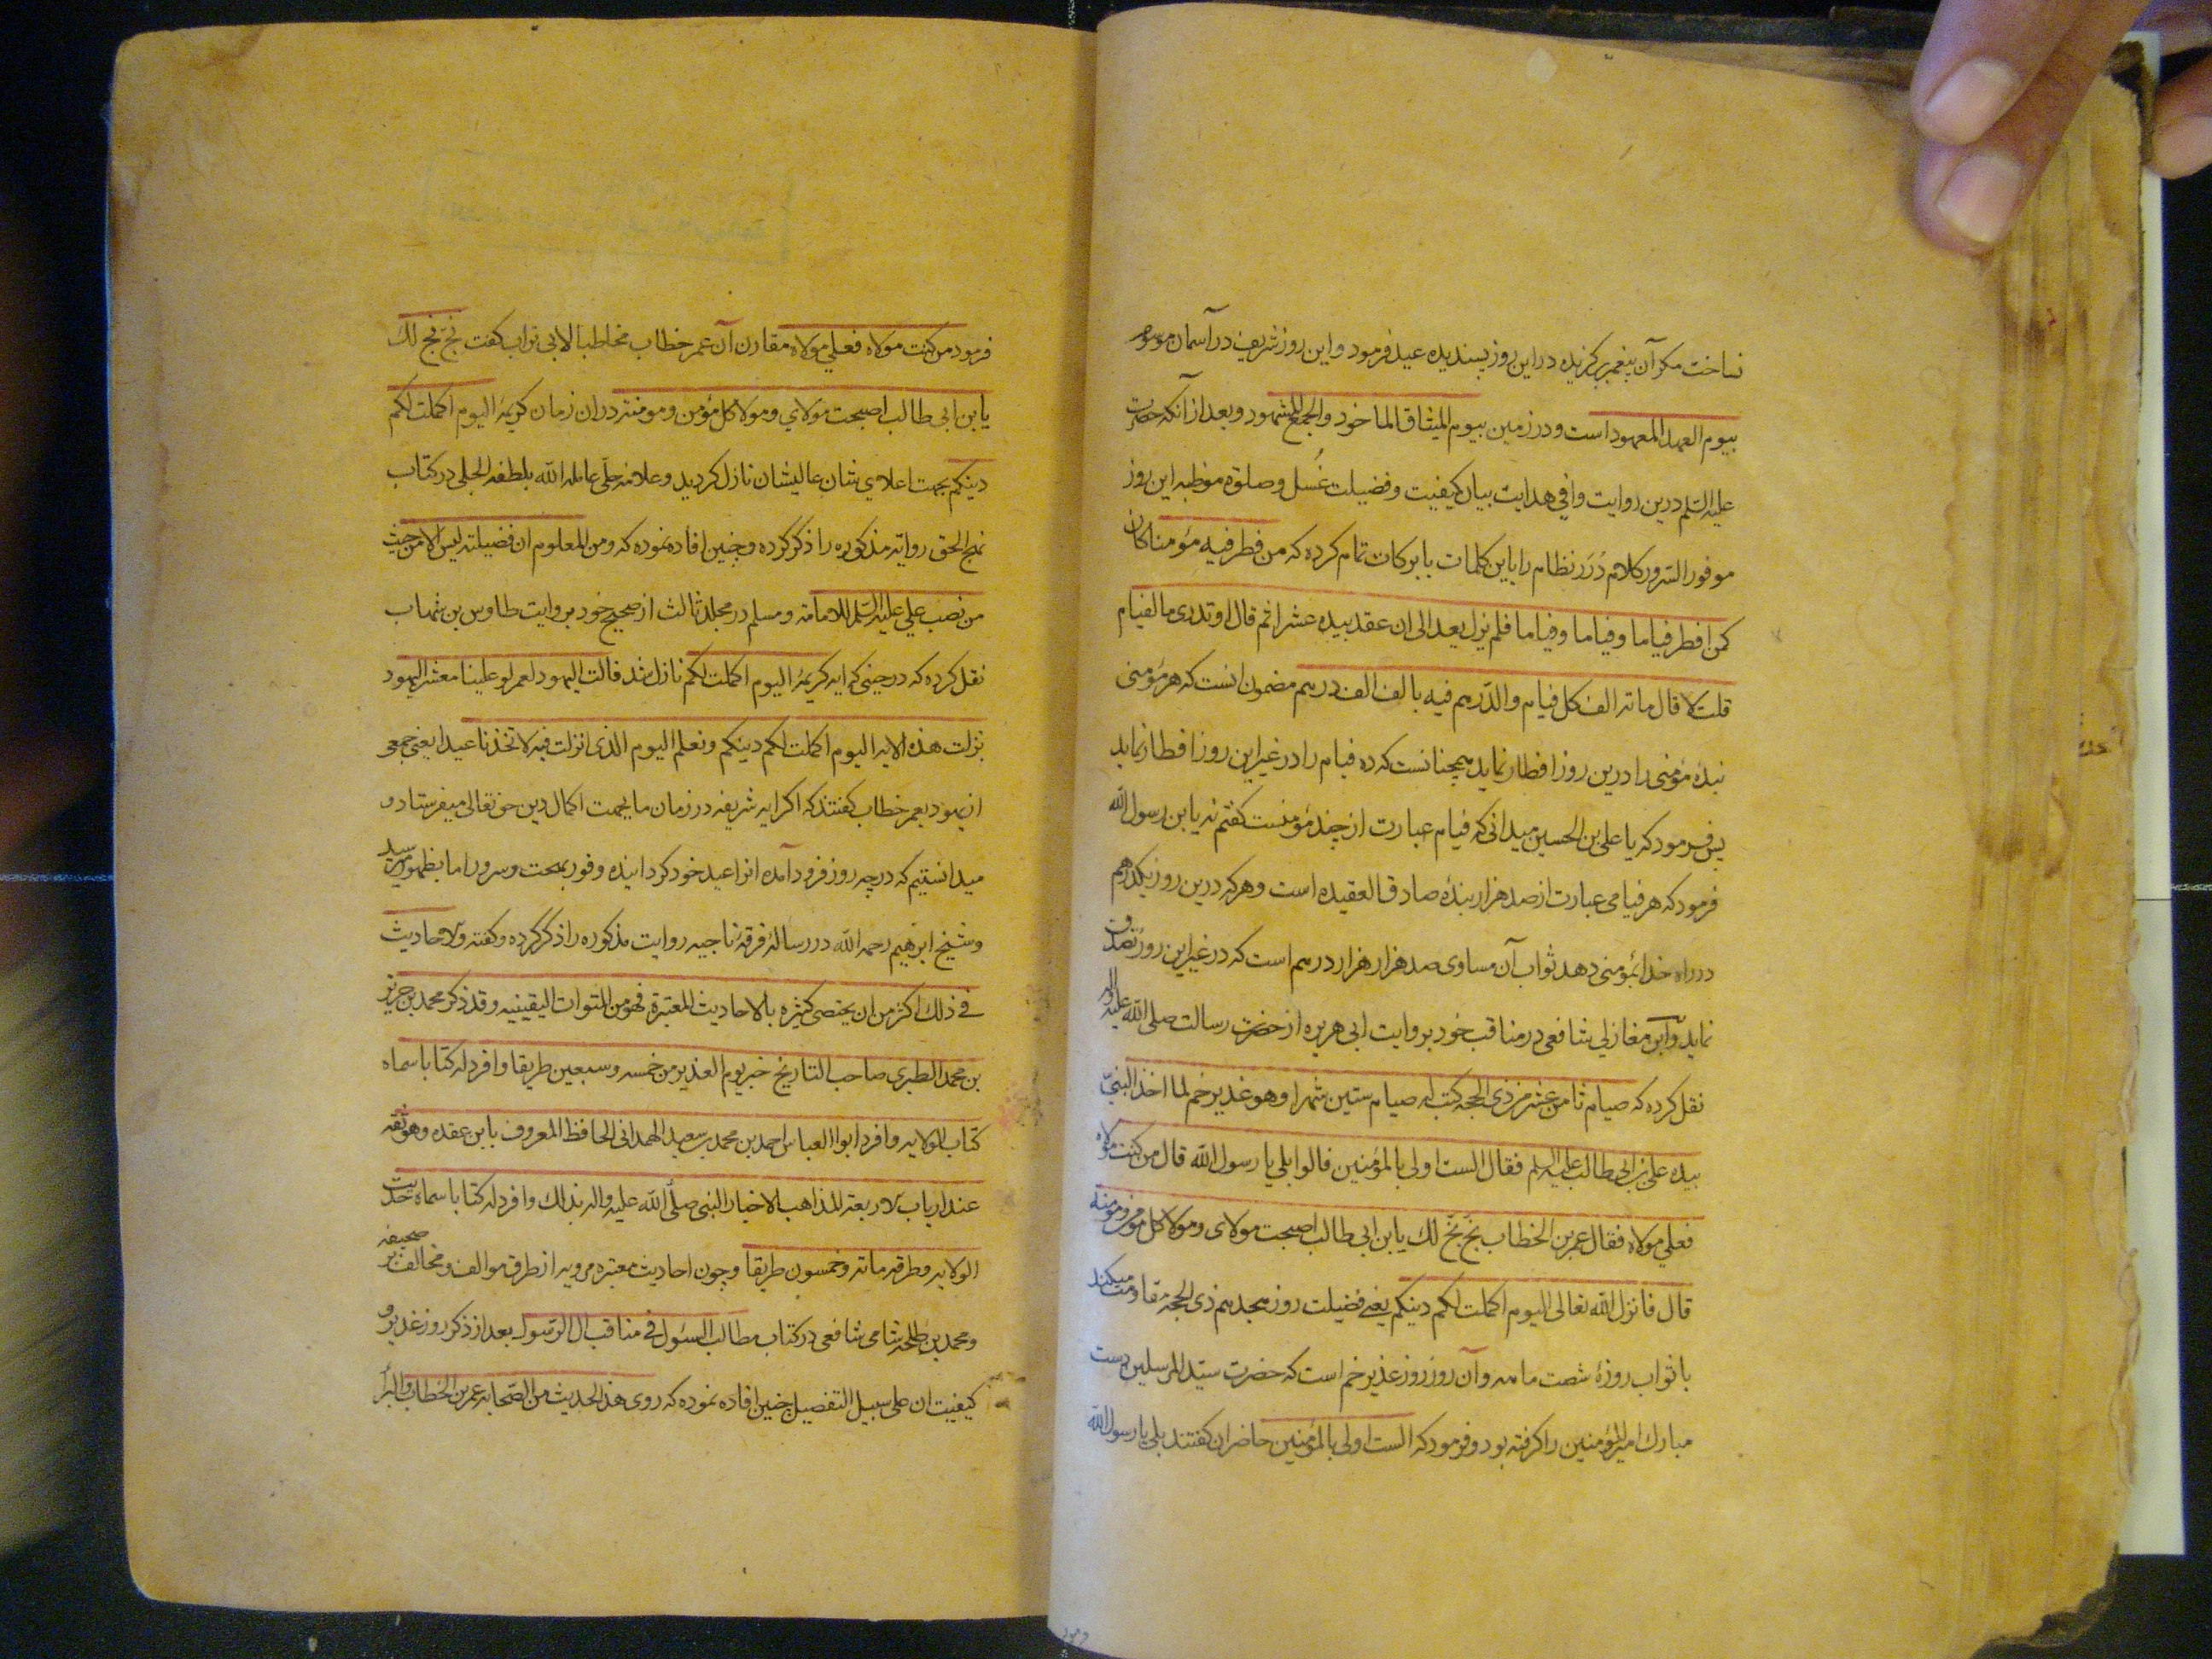 نساخت مکر آن پیغمبر برکزیده در این روز پسندیده عید فرمود و این روز شریف در آسمان موسوم
بیوم العهد المعهود است و در زمین بیوم المیثاق الماخوذ والجمع المشهود و بعد از آنکه حضرت
علیه السلم درین روایت وافی هدایت بیان کیفیت و فضیلت غُسل و صلوة موظبه این روز
موفور السرور کلام دُرَر نظام را باین کلمات بابرکات تمام کرده که من فطر فیه مؤمنا کان
کمن افطر فیاما و فیاما و فیاما فلم یزل یعد الی ان عقد بیده عشرا ثم قال اوتدری ما لفیام
قلت لا قال مائة الف کل فیام والدرهم فیه بالف الف درهم مضمون انست که هر مؤمنی
بندهٔ مؤمنی را درین روز افطار نماید همچنانست که ده فیام را در غیر این روز افطار نماید
پس فرمود که یا علی بن الحسین میدانی که فیام عبارت از چند مؤمنست کفتم نه یا بن رسول الله
فرمود که هر فیامی عبارت از صد هزار بندهٔ صادق العقیده است و هر که درین روز یکدرهم
در راه خدا بمؤمنی دهد ثواب آن مساوی صد هزار هزار درهم است که در غیر این روز تصدق
نماید و ابن مغازلی شافعی در مناقب خود بروایت ابی هریره از حضرت رسالت صلی الله علیه واله
نقل کرده که صیام ثامن عشر من ذی الحجه کتب له صیام ستین شهرا وهو غدیر خم لما اخذ النبیّ
بیده علی بن ابی طالب علیه السلم فقال الست اولی بالمؤمنین قالوا بلی یا رسول الله قال من کنت مولاه
فعلی مولاه فقال عمر بن الخطاب بخّ بخّ لك یا بن ابی طالب اصبحت مولای و مولا کل مؤمن و مومنة
قال فانزل الله تعالی الیوم اکملت لکم دینکم یعنی فضیلت روز هجدهم ذی الحجه مقاومت میکند
با ثواب روزهٔ شصت ماهه و آن روز روز غدیر خم است که حضرت سید المرسلین دست
مبارك امیر المؤمنین را کرفته بود و فرمود که الست اولی بالمؤمنین حاضران کفتند بلی یا رسول الله
فرمود من کنت مولاه فعلی مولاه مقارن آن عمر خطاب مخاطبا لابی تراب کفت بخّ بخّ لك
یا بن ابی طالب اصبحت مولای و مولا کل مؤمن و مومنة در ان زمان کریمهٔ الیوم اکملت لکم
دینکم بجهت اعلای شان عالیشان نازل کردید و علامهٔ حلی عامله الله بلطفه الجلی در کتاب
نهج الحق روایة مذکوره را ذکر کرده و چنین افاده نموده که ومن المعلوم ان فضیلته لیس الا من حیث
من نصب علی علیه السلم للامامة و مسلم در مجلد ثالث از صحیح خود بروایت طاوس بن شهاب
نقل کرده که در حینی که ایه کریمهٔ الیوم اکملت لکم نازل شد قالت الیهود لعمر لو علینا معشر الیهود
نزلت هذه الایة الیوم اکملت لکم دینکم و نعلم الیوم الذی انزلت فیه لاتخذنا عیدا یعنی جمعی
از یهود بعمر خطاب کفتند که اکر ایه شریفه در زمان ما بجهت اکمال دین حق تعالی میفرستاد و
میدانستیم که در چه روز فرود آمده انرا عید خود کردانیده وفور بهجت و سرور اما بظهور میرسید
و شیخ ابرهیم رحمه الله در رسالهٔ فرقهٔ ناجیه روایت مذکوره را ذکر کرده و کفته والاحادیث
فی ذلك اکثر من ان یحتصی کثیره بالاحادیث المعتبرة فهو من المتوات الیقینیه وقد ذکر محمد بن جریر
بن محمد الطبری صاحب التاریخ خبر یوم الغدیر من خمسه وسبعین طریقا وافرد له کتابا سماه
کتاب الولایه وافرد ابوا العباس احمد بن محمد بن سعید الهمدانی الحافظ المعروف بابن عقده وهو ثقه
عند ارباب لاربعة المذاهب لاخبار النبی صلی الله علیه واله بذلك وافرد له کتابا سماه حدیث
الولایه وطرقه مائة وخمسون طریقا و چون احادیث معتبره مرویه از طرق موالف و مخالف بر صحیفه
و محمد بن طلحه شامی شافعی در کتاب مطالب السئول فی مناقب ال الرسول بعد از ذکر روز غدیر و
کیفیت ان علی سبیل التفصیل چنین افاده نموده که روی هذا الحدیث من الصحابه عمر بن الخطاب والبرأ